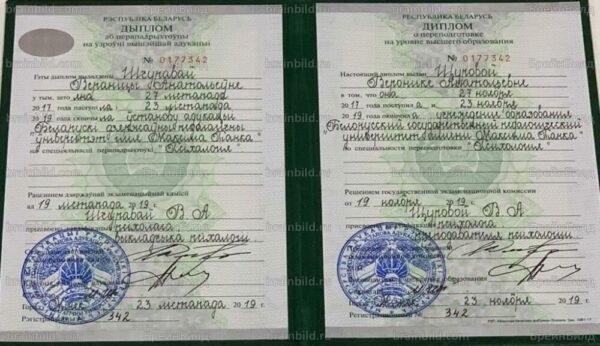 РЭСПУБЛІКА БЕЛАРУСЬ
ДЫПЛОМ
аб перападрыхтоўцы
на ўзроўні вышэйшай адукацыі
№ 0177342
Гэты дыплом выдадзены
Вераніцы Анатольеўне
у тым, што яна 27 лістапада
2017 года паступіла 23 лістапада
2019 скончыла установу адукацыі
Беларускі дзяржаўны педагагічны
універсітэт імя Максіма Танка"
па спецыяльнасці перападрыхтоўкі "Псіхалогія"
Рашэннем дзяржаўнай экзаменацыйнай камісіі
ад 19 лістапада 2019 г.
В.А.
прысвоена кваліфікацыя псіхолага,
выкладчыка псіхалогіі
23 лістапада 2019 г.
Рэгістрацыйны № 342
РЕСПУБЛИКА БЕЛАРУСЬ
ДИПЛОМ
о переподготовке
на уровне высшего образования
№ 0177342
Настоящий диплом выдан Щуровой
Веронике Анатольевне
в том, что она 27 ноября
2017 года поступила 23 ноября
2019 окончила учреждение образования
"Белорусский государственный педагогический
университет имени Максима Танка"
по специальности переподготовки "Психология"
Решением государственной экзаменационной комиссии
от 19 ноября 2019 г.
Щуровой В.А.
психолога,
преподавателя психологии
23 ноября 2019 г.
Регистрационный № 342
brainbild.ru